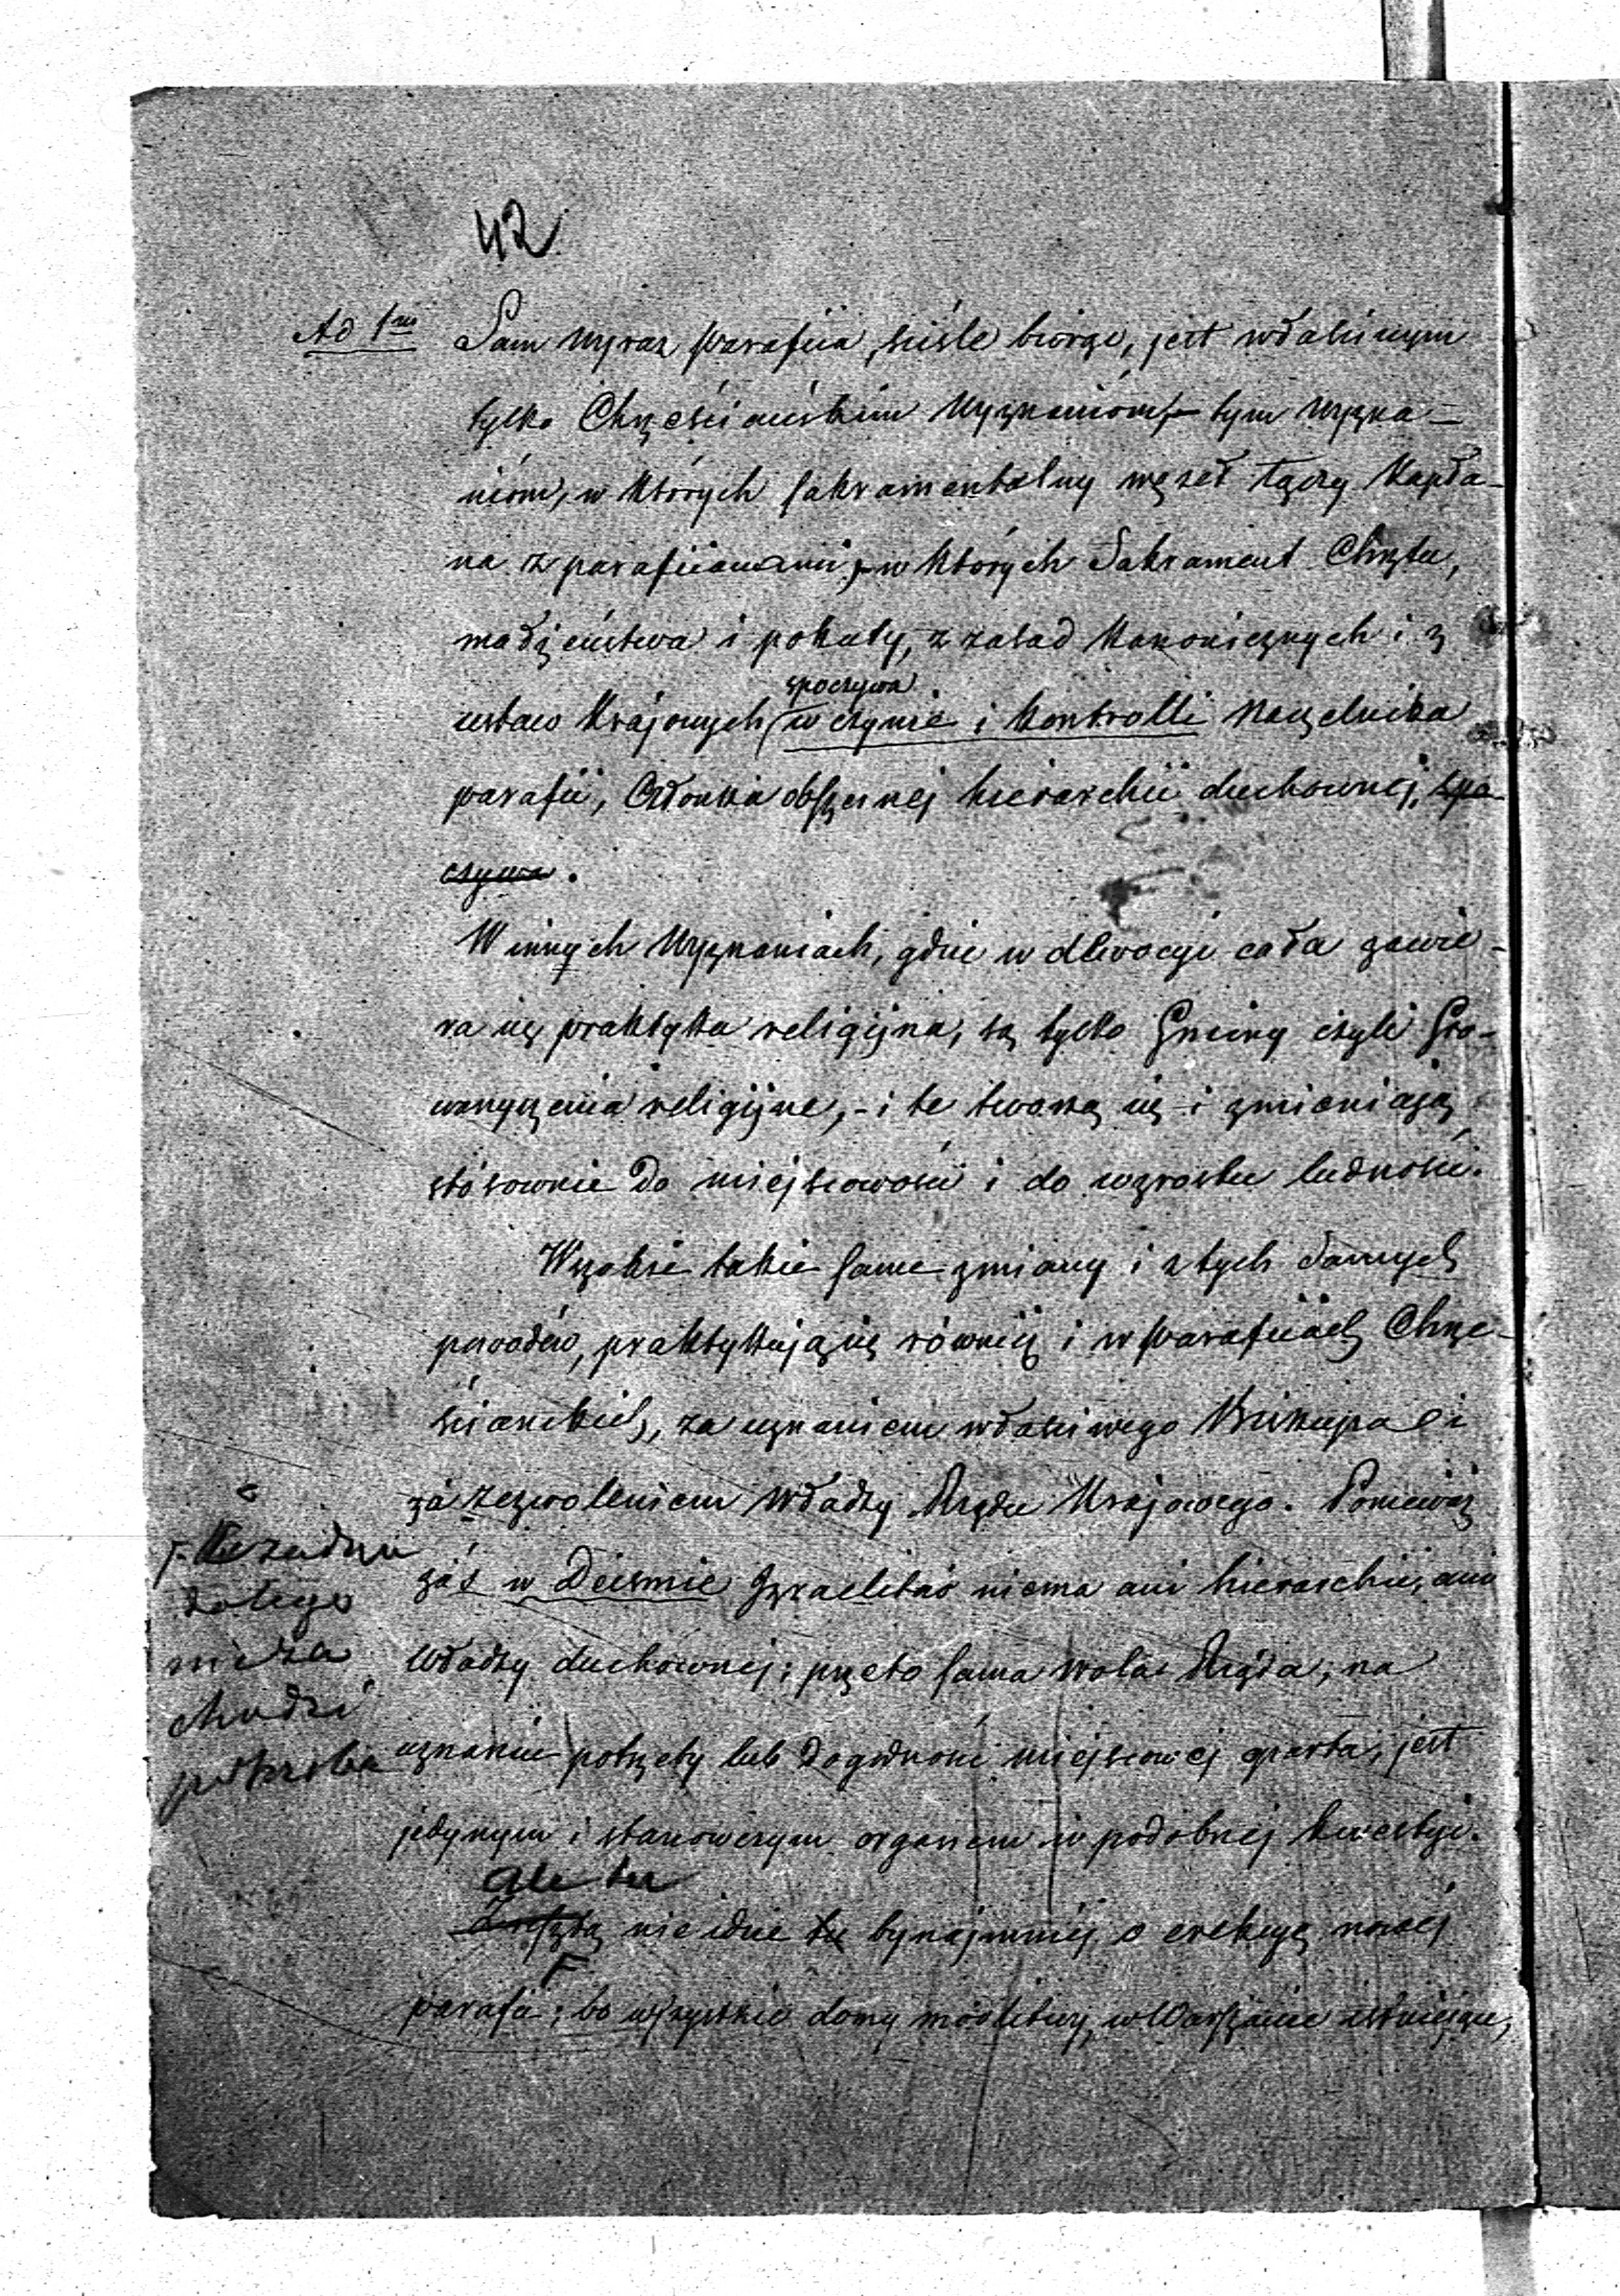 42
Ad 1mo Sam wyraz parafiia, ściśle biorąc, jest właściwym
tylko Chrześciańskim wyznaniom, – tym wyzna-
niom, w których sakramentalny węzeł łączy Kapła-
na z parafiianami, – w których Sakrament Chrztu,
małżeństwa i pokuty, z zasad kanonicznych i z
spoczywa
ustaw Krajowych, w czynie i kontrolli Naczelnika
parafii, Członka obszernej hierarchii duchownej, spo-
czywa.
W innych wyznaniach, gdzie w dewocyi cała zawie-
ra się praktyka religijna, są tylko Gminy czyli Sto-
warzyszenia religijne, – i te tworzą się i zmieniają
stósownie do miejscowości i do wzrostu ludności.
Wszakże takie same zmiany i z tych samych
powodów, praktykują się również i w parafiiach Chrze-
ściańskich, za uznaniem właściwego Biskupa i
za zezwoleniem władzy Rządu Krajowego. Ponieważ
zaś w Deismie Izraelitów niema ani hierarchii, ani
władzy duchownej; przeto sama wola Rządu, na
uznaniu potrzeby lub dogodności miejscowej oparta, jest
jedynym i stanowczym organem w podobnej kwestyi.
ale tu
Zresztą nie idzie tu bynajmniej o erekcyą nowej
parafii; bo wszystkie domy modlitwy w Warszawie istniejące,
żadna
do tego
nie za
chodzi
potrzeba